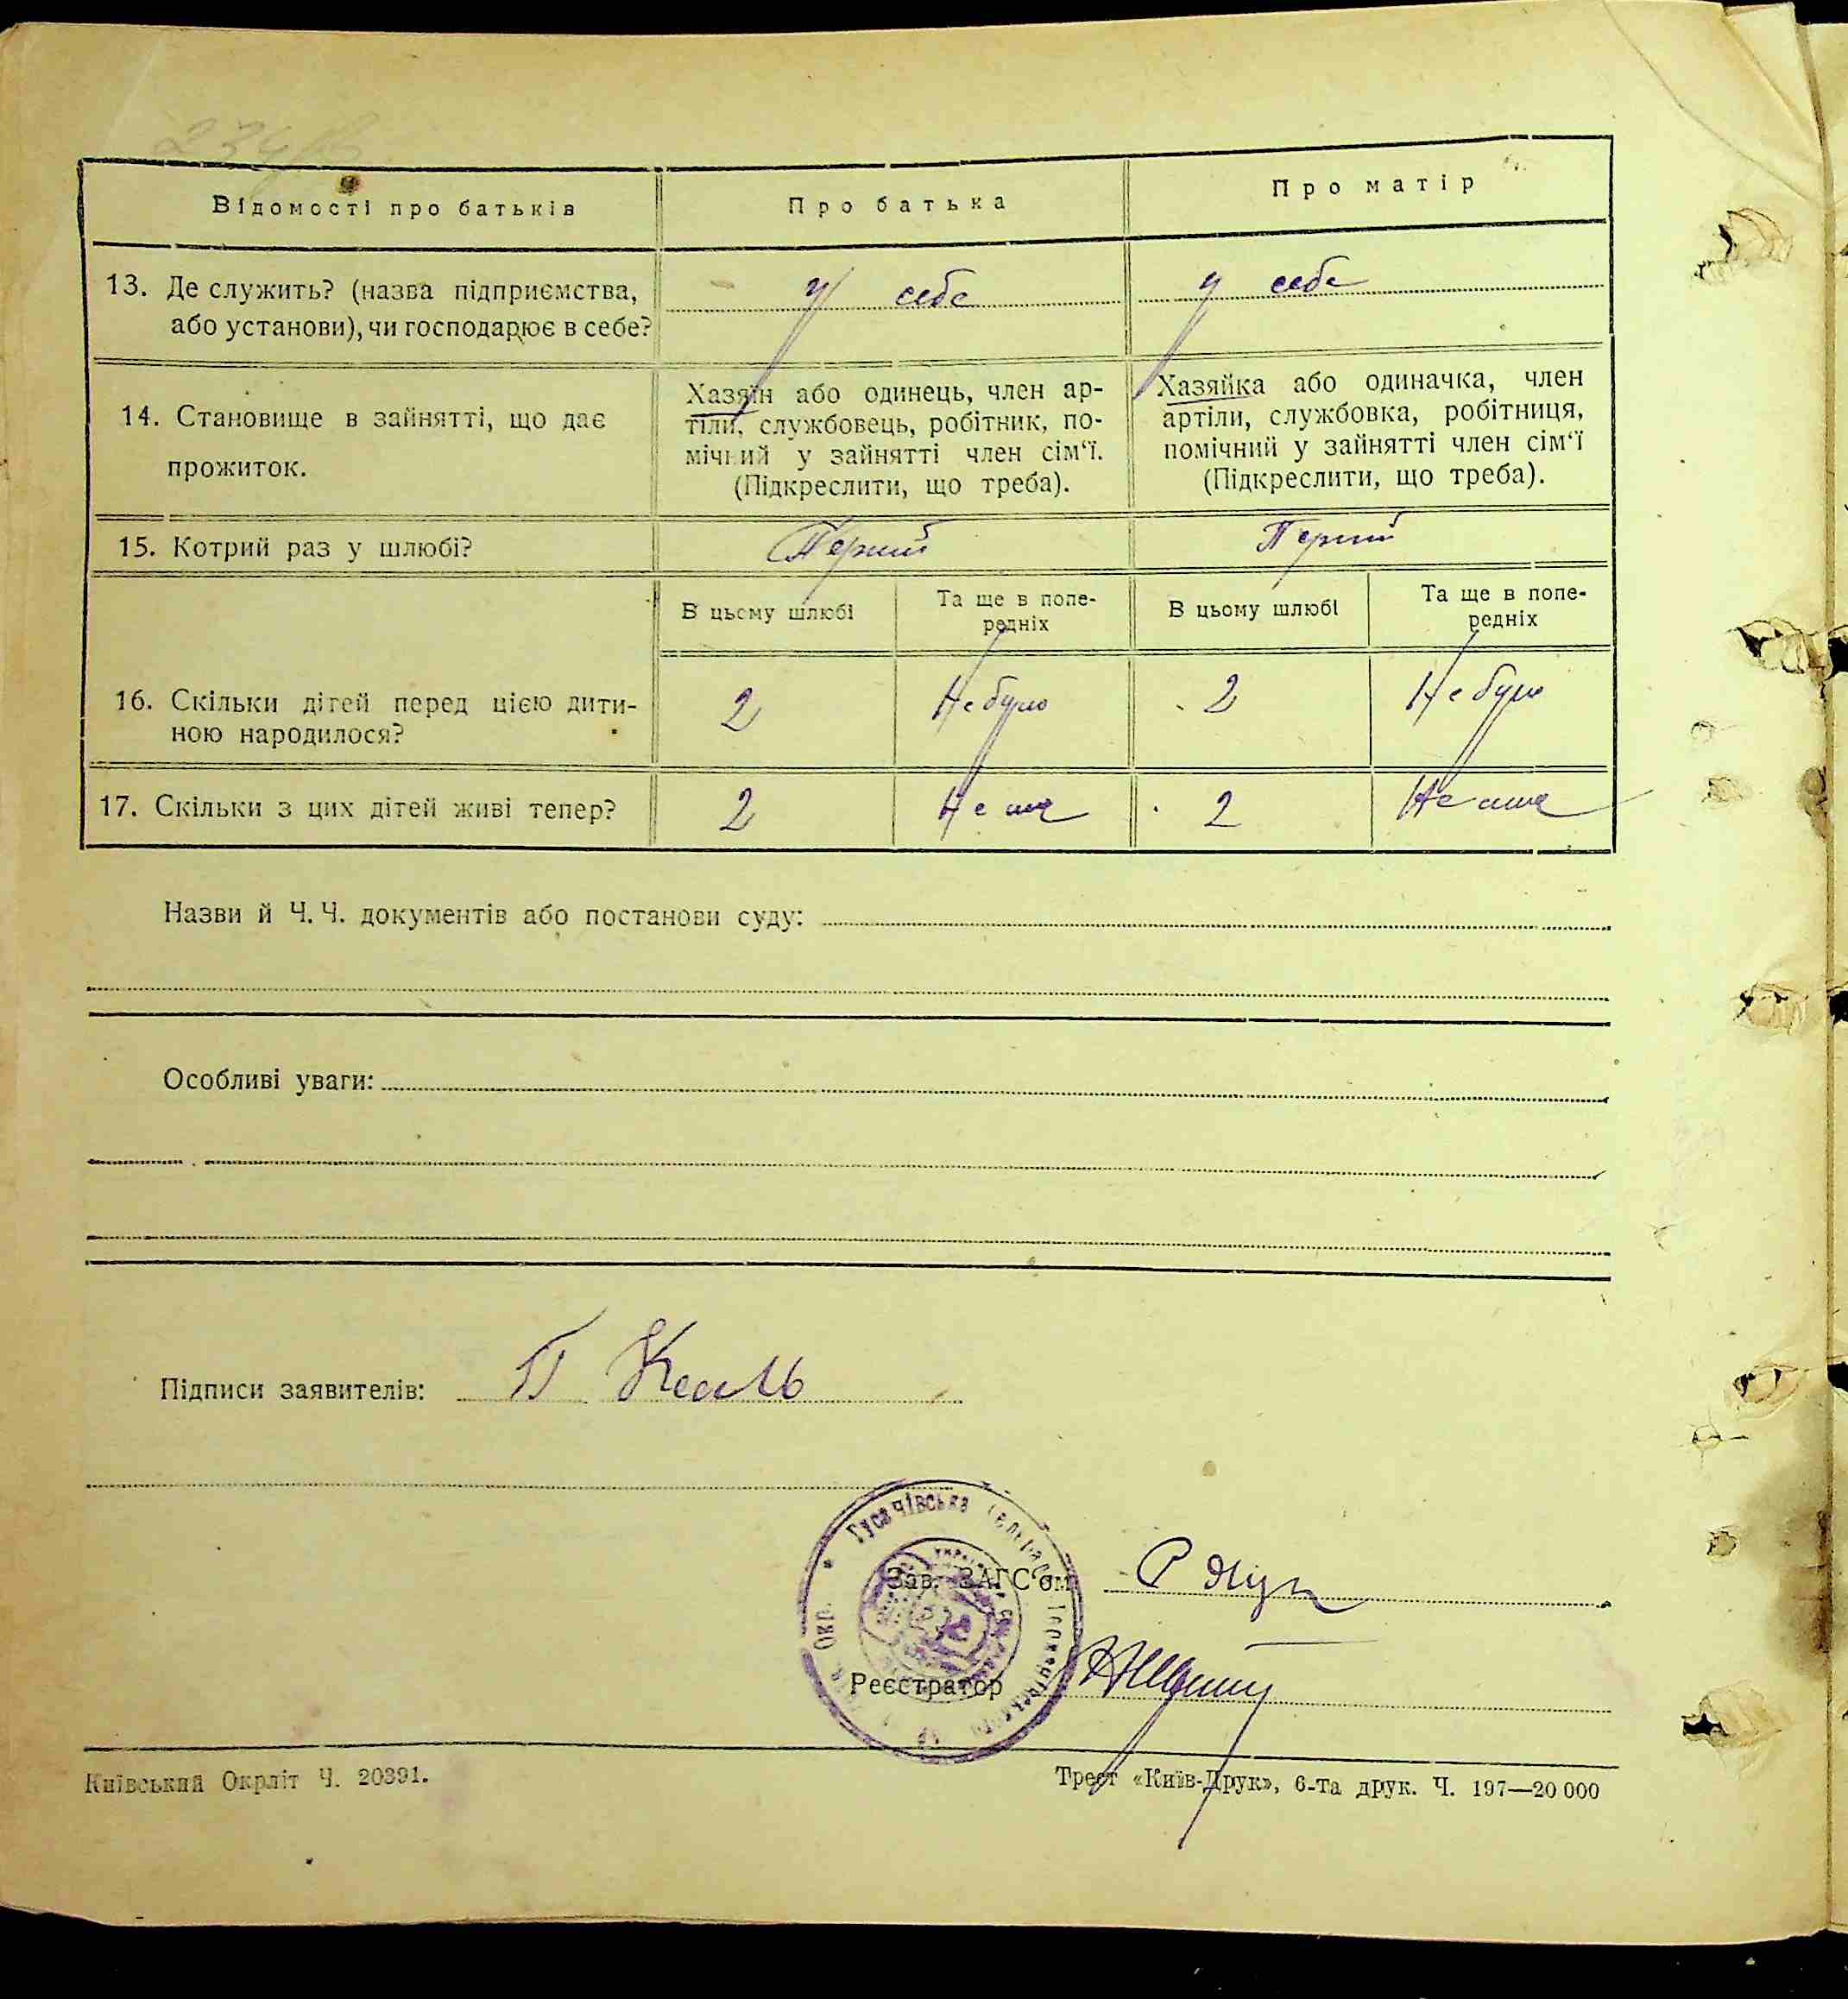 Відомості про батьків
Про батька
Про матір
13. Де служить? (назва підприємства,
або установи), чи господарює в себе?
у себе
у себе
14. Становище в зайнятті, що дає
прожиток.
Хазяїн або одинець, член ар-
тіли, службовець, робітник, по-
мічний у зайнятті член сім‘ї.
(Підкреслити, що треба).
Хазяйка або одиначка, член
артіли, службовка, робітниця,
помічний у зайнятті член сім‘ї
(Підкреслити, що треба).
15. Котрий раз у шлюбі?
Перший
Перший
В цьому шлюбі
Та ще в попе-
редніх
В цьому шлюбі
Та ще в попе-
редніх
16. Скільки дітей перед цією дити-
ною народилося?
2
Небуло
2
Небуло
17. Скільки з цих дітей живі тепер?
2
Нема
2
Нема
Назви й Ч. Ч. документів або постанови суду:
Особливі уваги:
Підписи заявителів: П Коаль
Гусачівська сельрада
Зав. ЗАГС‘ом
Реєстратор
Київський Окрліт Ч. 20391.
Трест «Київ-Друк», 6-та друк. Ч. 197—20 000